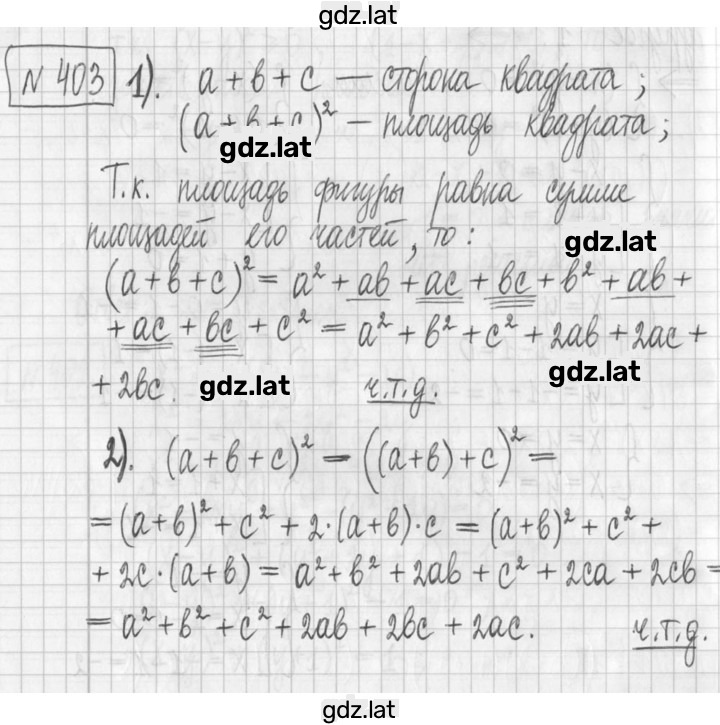 gdz.lat
№ 403 1). a + b + c — сторона квадрата;
(a + b + c)² — площадь квадрата;
gdz.lat
Т.к. площадь фигуры равна сумме
площадей его частей, то:
gdz.lat
(a + b + c)² = a² + ab + ac + bc + b² + ab +
+ ac + bc + c² = a² + b² + c² + 2ab + 2ac +
gdz.lat
+ 2bc. gdz.lat ч.т.д.
2). (a + b + c)² = ((a + b) + c)² =
= (a + b)² + c² + 2·(a + b)·c = (a + b)² + c² +
+ 2c·(a + b) = a² + b² + 2ab + c² + 2ca + 2cb =
= a² + b² + c² + 2ab + 2bc + 2ac. ч.т.д.
gdz.lat